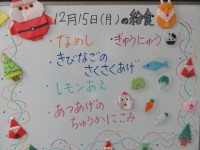 12月15日(月)の給食
・なめし ・ぎゅうにゅう
・きびなごの
さくさくあげ
・レモンあえ
・あつあげの
ちゅうかにこみ